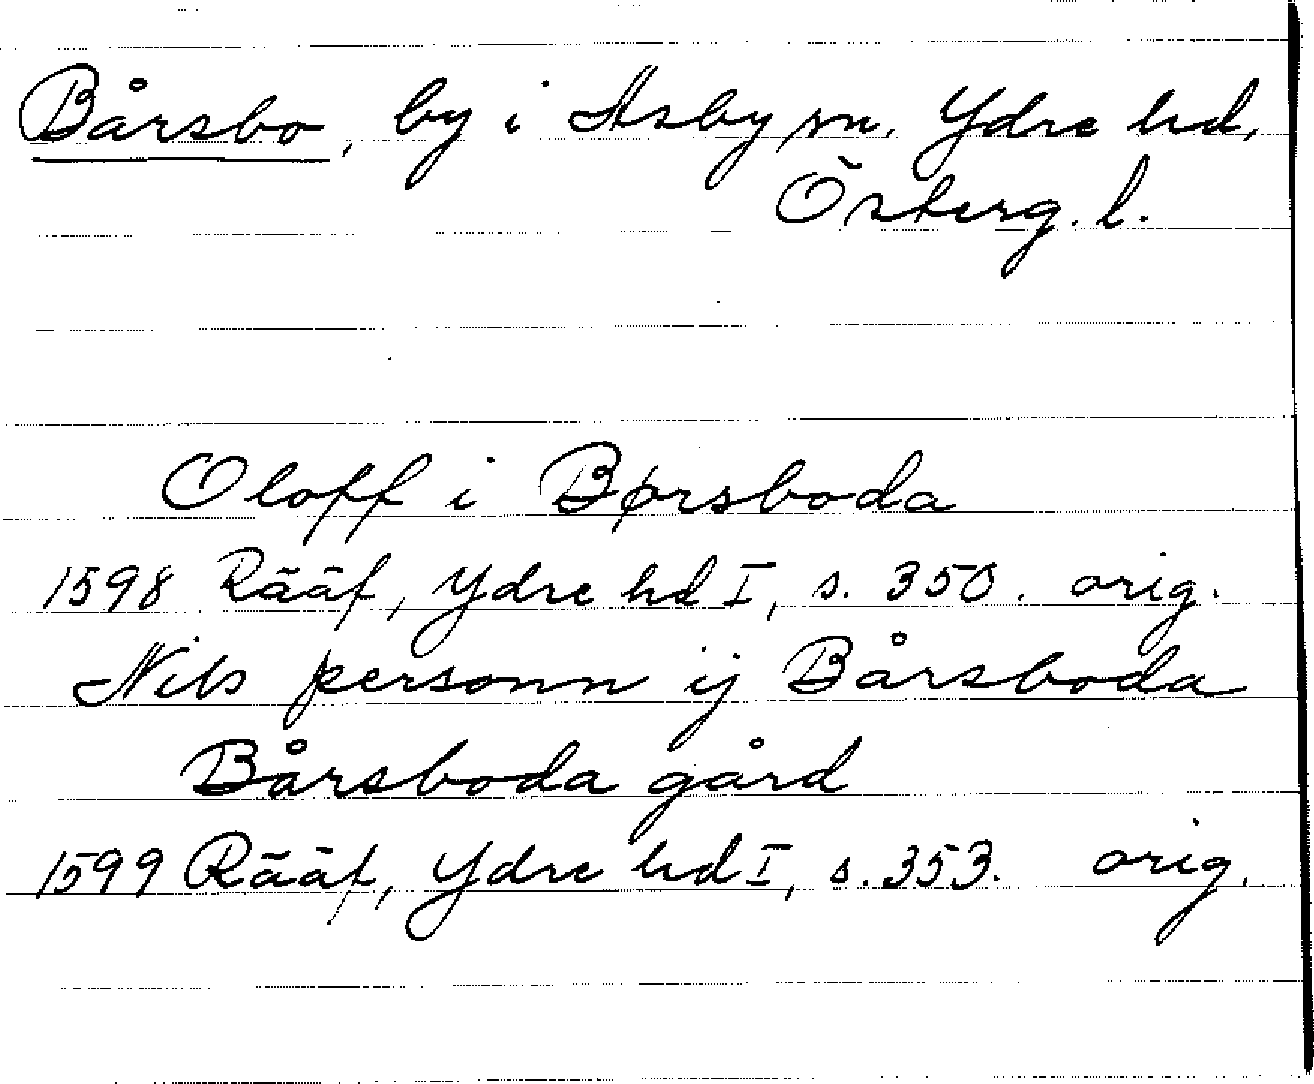 Bårsbo, by i Asby sn. Ydre hd,
Österg. l.
Oloff i Børsboda
1598 Rääf, Ydre hd I, s. 350. orig.
Nils personn ij Bårsboda
Bårsboda gård
1599 Rääf, Ydre hd I, s. 353. orig.